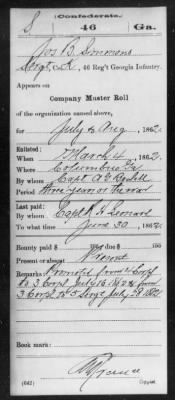 Confederate.
S 46 Ga.
Jos B. Simmons
Sergt, Co. K, 46 Reg't Georgia Infantry.
Appears on
Company Muster Roll
of the organization named above,
for July & Aug, 1862.
Enlisted:
When March 4, 1862.
Where Columbus Ga
By whom Capt A. C. Redell
Period three years or the war
Last paid:
By whom Capt R H Leonard
To what time June 30, 1862.
Bounty paid $ 100; due $ 100
Present or absent Present
Remarks: Promoted from 4 Corpl
to 3 Corpl July 16 1862 & from
3 Corpl to 5 Sergt July 28 1862
Book mark:
(642) Copyist.